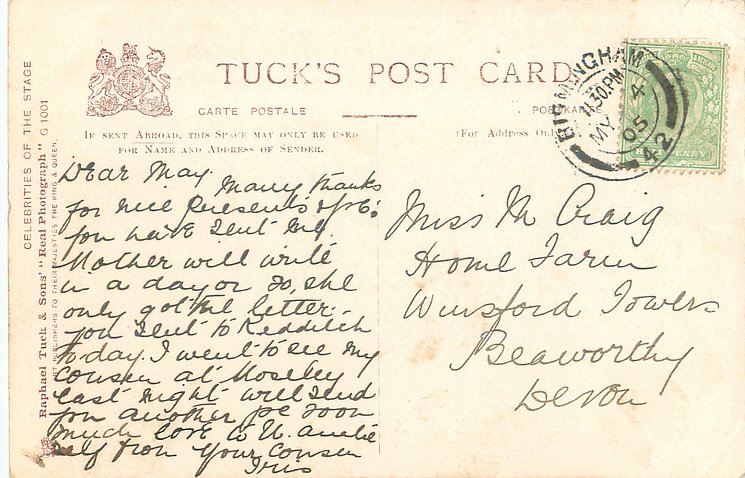 TUCK'S POST CARD
CARTE POSTALE
POSTKARTE
IF SENT ABROAD, THIS SPACE MAY ONLY BE USED
FOR NAME AND ADDRESS OF SENDER.
(For Address On
CELEBRITIES OF THE STAGE
Raphael Tuck & Sons' "Real Photograph" G 1001
ART PUBLISHERS TO THEIR MAJESTIES THE KING & QUEEN.
BIRMINGHAM
11.30PM
MY 4
05
42
PENNY
Dear May.
Many thanks
for nice Presents &
you have sent me.
Mother will write
in a day or so, she
only got the letter
you sent to Redditch
today. I went to see my
Consen at Moseley
last night will send
you another pc soon
much love to U. Auntie
self from Your Consen
Iris
Miss M Craig
Home Farm
Winsford Towers
Beaworthy
Devon